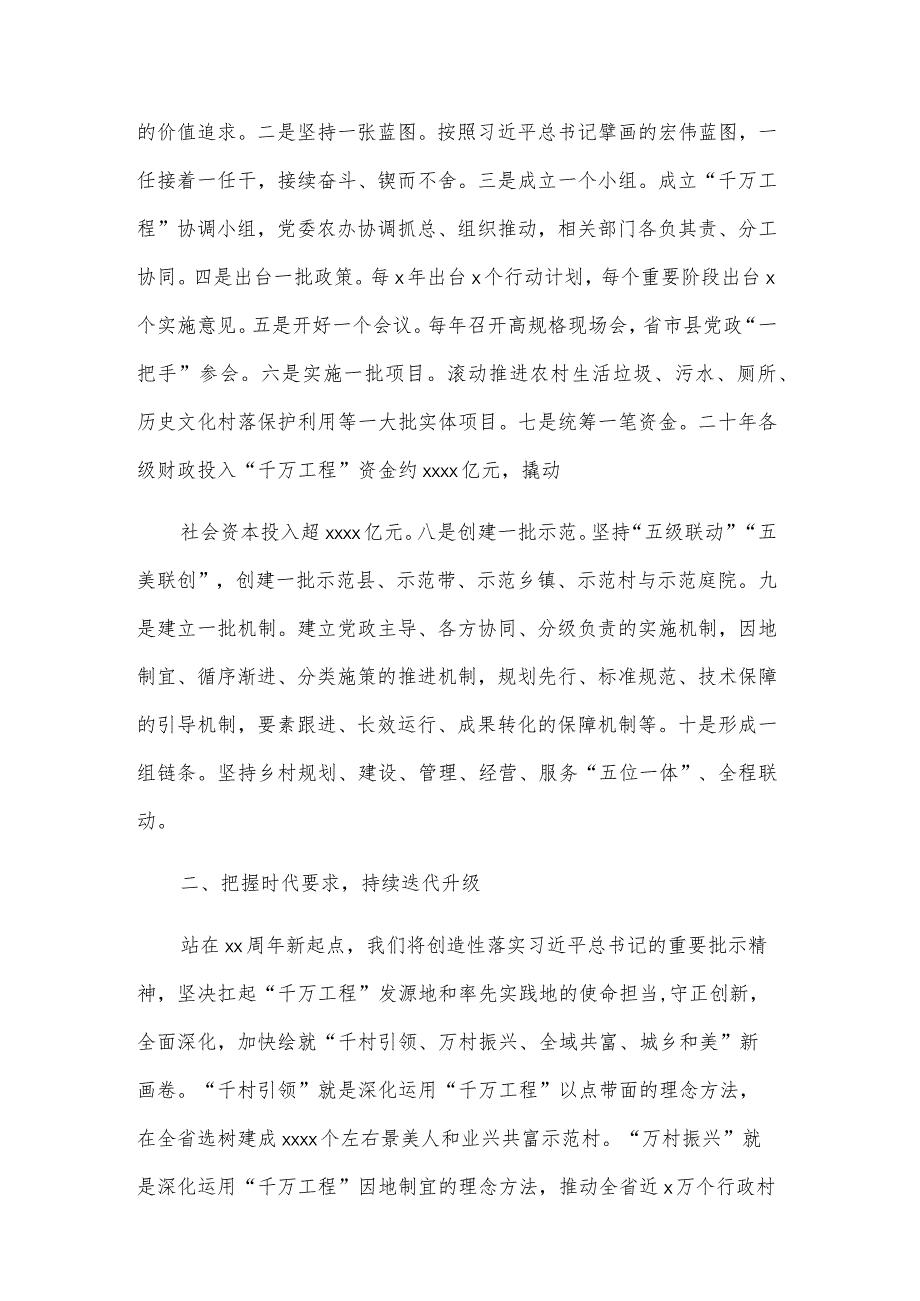 的价值追求。二是坚持一张蓝图。按照习近平总书记擘画的宏伟蓝图，一
任接着一任干，接续奋斗、锲而不舍。三是成立一个小组。成立“千万工
程”协调小组，党委农办协调抓总、组织推动，相关部门各负其责、分工
协同。四是出台一批政策。每x年出台x个行动计划，每个重要阶段出台x
个实施意见。五是开好一个会议。每年召开高规格现场会，省市县党政“一
把手”参会。六是实施一批项目。滚动推进农村生活垃圾、污水、厕所、
历史文化村落保护利用等一大批实体项目。七是统筹一笔资金。二十年各
级财政投入“千万工程”资金约xxxx亿元，撬动
社会资本投入超xxxx亿元。八是创建一批示范。坚持“五级联动”“五
美联创”，创建一批示范县、示范带、示范乡镇、示范村与示范庭院。九
是建立一批机制。建立党政主导、各方协同、分级负责的实施机制，因地
制宜、循序渐进、分类施策的推进机制，规划先行、标准规范、技术保障
的引导机制，要素跟进、长效运行、成果转化的保障机制等。十是形成一
组链条。坚持乡村规划、建设、管理、经营、服务“五位一体”、全程联
动。
二、把握时代要求，持续迭代升级
站在xx周年新起点，我们将创造性落实习近平总书记的重要批示精
神，坚决扛起“千万工程”发源地和率先实践地的使命担当,守正创新，
全面深化，加快绘就“千村引领、万村振兴、全域共富、城乡和美”新
画卷。“千村引领”就是深化运用“千万工程”以点带面的理念方法，
在全省选树建成xxxx个左右景美人和业兴共富示范村。“万村振兴”就
是深化运用“千万工程”因地制宜的理念方法，推动全省近x万个行政村